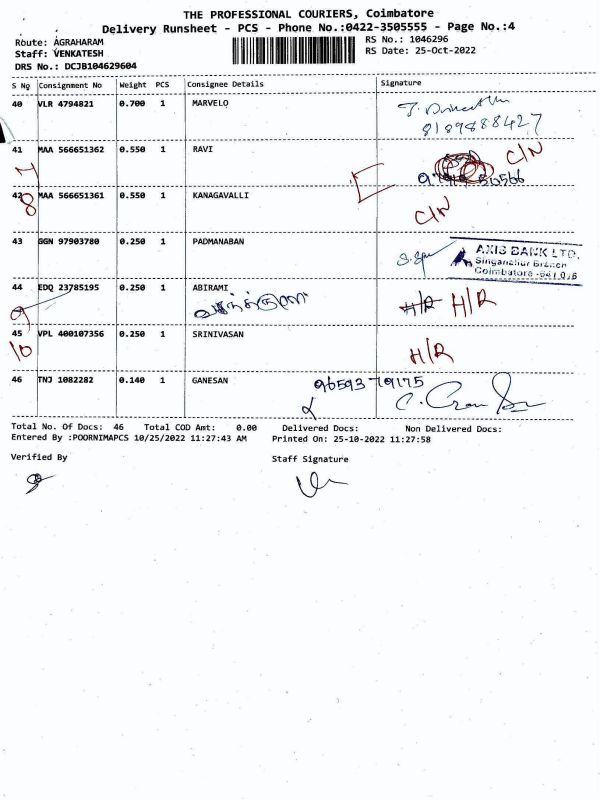 THE PROFESSIONAL COURIERS, Coimbatore
Delivery Runsheet - PCS - Phone No.:0422-3505555 - Page No.:4
Route: AGRAHARAM
RS No.: 1046296
Staff: VENKATESH
RS Date: 25-Oct-2022
DRS No.: DCJB104629604
S No Consignment No Weight PCS Consignee Details Signature
40 VLR 4794821 0.700 1 MARVELO
8189888427
41 MAA 566651362 0.550 1 RAVI C/N
7
42 MAA 566651361 0.550 1 KANAGAVALLI
8 C/N
43 GGN 97903780 0.250 1 PADMANABAN
AXIS BANK LTD.
Singanallur Branch
Coimbatore -641 005
44 EDQ 23785195 0.250 1 ABIRAMI
H/R H/R
9
45 VPL 400107356 0.250 1 SRINIVASAN
10 H/R
46 TNJ 1082282 0.140 1 GANESAN 96593 79175
Total No. Of Docs: 46 Total COD Amt: 0.00 Delivered Docs: Non Delivered Docs:
Entered By :POORNIMAPCS 10/25/2022 11:27:43 AM Printed On: 25-10-2022 11:27:58
Verified By Staff Signature